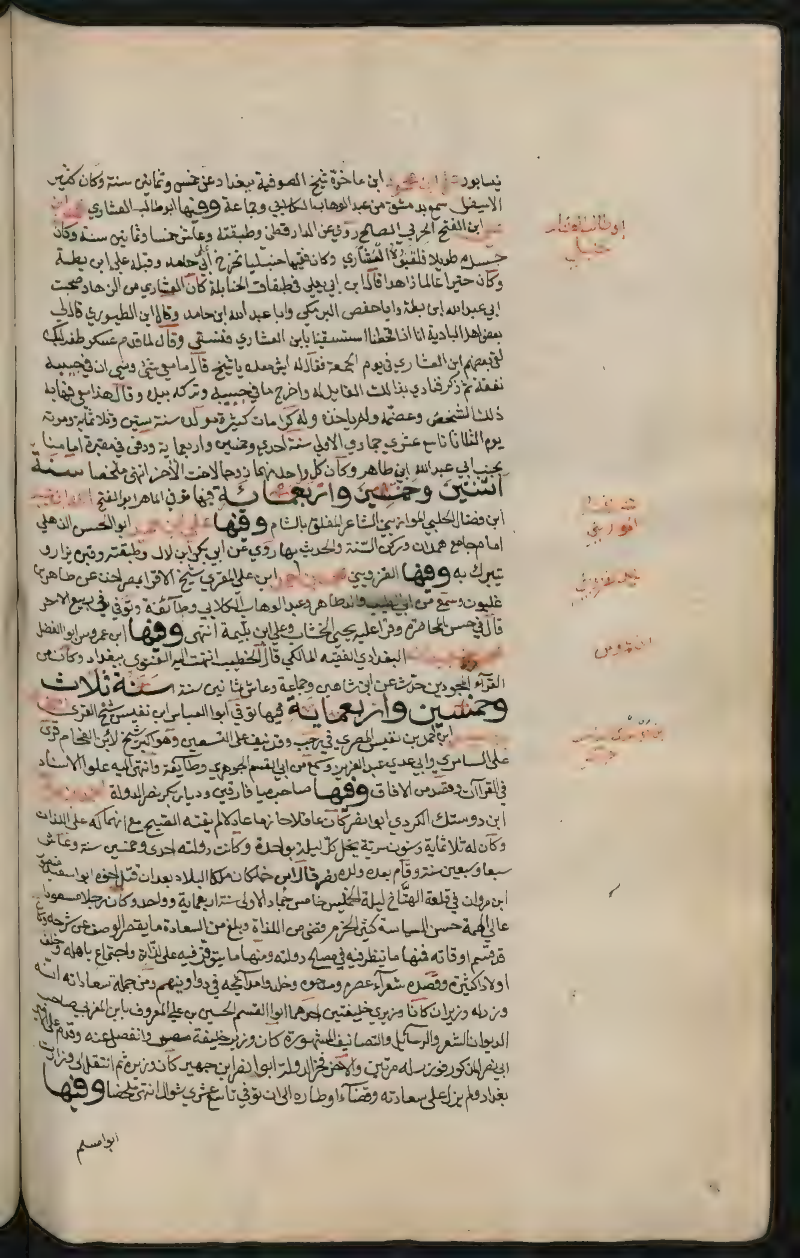 نيسابور ابن ماخرة شيخ الصوفية ببغداد عن خمس وثمانين سنة وكان كثير
الاسفار سمع بدمشق من عبد الوهاب الكلابي وجماعة وفيها ابو طالب العشاري
ابن الفتح الحربي الصالح روى عن الدارقطني وطبقته وعاش خمسا وثمانين سنة وكان
جسده طويلا فلقبوه العشاري وكان فقيها حنبليا تخرج على ابي حامد وقبله على ابن بطة
وكان خيرا عالما زاهدا قال ابن ابي يعلى في طبقات الحنابلة كان العشاري من الزهاد صحب
ابي عبد الله ابن بطة وابا حفص البرمكي وابا عبد الله ابن حامد وقال ابن الطيوري قال لي
بعض اهل البادية انا اذا قحطنا استسقينا بابن العشاري فنسقى وقال لما قدم عسكر طغرلبك
لقي بعضهم ابن العشاري في يوم الجمعة فقال له ايش معك يا شيخ قال ما معي شيء ونسي ان في جيبه
نفقة ثم ذكر فنادى بذلك القايل له واخرج ما في جيبه وتركه بيده وقال هذا معي فهابه
ذلك الشخص وعظمه ولم ياخذه وله كرامات كثيرة مولده سنة ستين وثلاثماية وموته
يوم الثلاثا تاسع عشري جمادى الاولى سنة احدى وخمسين واربعماية ودفن في مقبرة امامنا
بجنب ابي عبد الله ابن طاهر وكان كل واحد منهما زوجا لاخت الاخر انتهى ملخصا سنة
اثنتين وخمسين واربعمائة فيها توفي الماهر ابو الفتح
ابن فضال الحلبي الموازيني الشاعر المفلق بالشام وفيها علي ابن حميد ابو الحسن الذهلي
امام جامع همدان وركن السنة والحديث بها روى عن ابي بكر ابن لال وطبقته وقبره يزار و
يتبرك به وفيها القزويني محمد بن احمد ابن علي المقري شيخ الاقرا بمصر اخذ عن طاهر بن
غلبون وسمع من ابي الطيب والد طاهر وعبد الوهاب الكلابي وطائفة وتوفي في ربيع الاخر
قال في حسن المحاضرة وقرا عليه يحيى الخشاب وعلي ابن بليمة انتهى وفيها ابن عمروس ابو الفضل
البغدادي الفقيه المالكي قال الخطيب انتهت اليه الفتوى ببغداد وكان من
القراء المجودين حدث عن ابن شاهين وجماعة وعاش ثمانين سنة سنة ثلاث
وخمسين واربعماية فيها توفي ابو العباس ابن نفيس شيخ القراء
ابن احمد بن نفيس المصري في رجب وقد نيف على التسعين وهو اكبر شيخ لابن الفحام قرا
على السامري وابي عدي عبد العزيز وسمع من ابي القسم الجوهري وطائفة وانتهى اليه علو الاسناد
في القرآن وقصد من الافاق وفيها صاحب ميافارقين وديار بكر نصر الدولة
ابن دوستك الكردي ابو نصر كان عاقلا حازما عادلا لم يفته الصبح مع انهماكه على اللذات
وكان له ثلاثماية وستون سرية يخلي كل ليلة بواحدة وكانت دولته احدى وخمسين سنة وعاش
سبعا وسبعين سنة وقام بعده ولده نصر قال ابن خلكان ملك البلاد بعد ان قتل اخوه ابو سعيد منصور
ابن مروان في قلعة الهتاخ ليلة الخميس خامس جماد الاولى سنة اربعماية وواحد وكان رجلا مسعودا
عالي الهمة حسن السياسة كثير الحزم قضى من اللذات وبلغ من السعادة ما يقصر الوصف عن شرحه وكان
قد قسم اوقاته فمنها ما ينظر فيه في مصالح دولته ومنها ما يتوفر فيه على لذاته واجتماع باهله وخلف
اولادا كثيرة وقصده شعراء عصره ومدحوه وخلدوا مدائحه في دواوينهم ومن جملة سعاداته انه
وزر له وزيران كانا وزيري خليفتين احدهما ابو القسم الحسين بن علي المعروف بابن المغربي صاحب
الديوان الشعر والرسائل والتصانيف المشهورة كان وزير خليفة مصر وانفصل عنه وقدم على الامير
ابي نصر المذكور فوزر له مرتين والاخر فخر الدولة ابو نصر ابن جهير كان وزيره ثم انتقل الى وزارة
بغداد ولم يزل على سعادته وقضاء اوطاره الى ان توفي تاسع عشري شوال انتهى ملخصا وفيها
ابو مسلم
ابو طالب العشاري
حنبلي
ابن عمروس